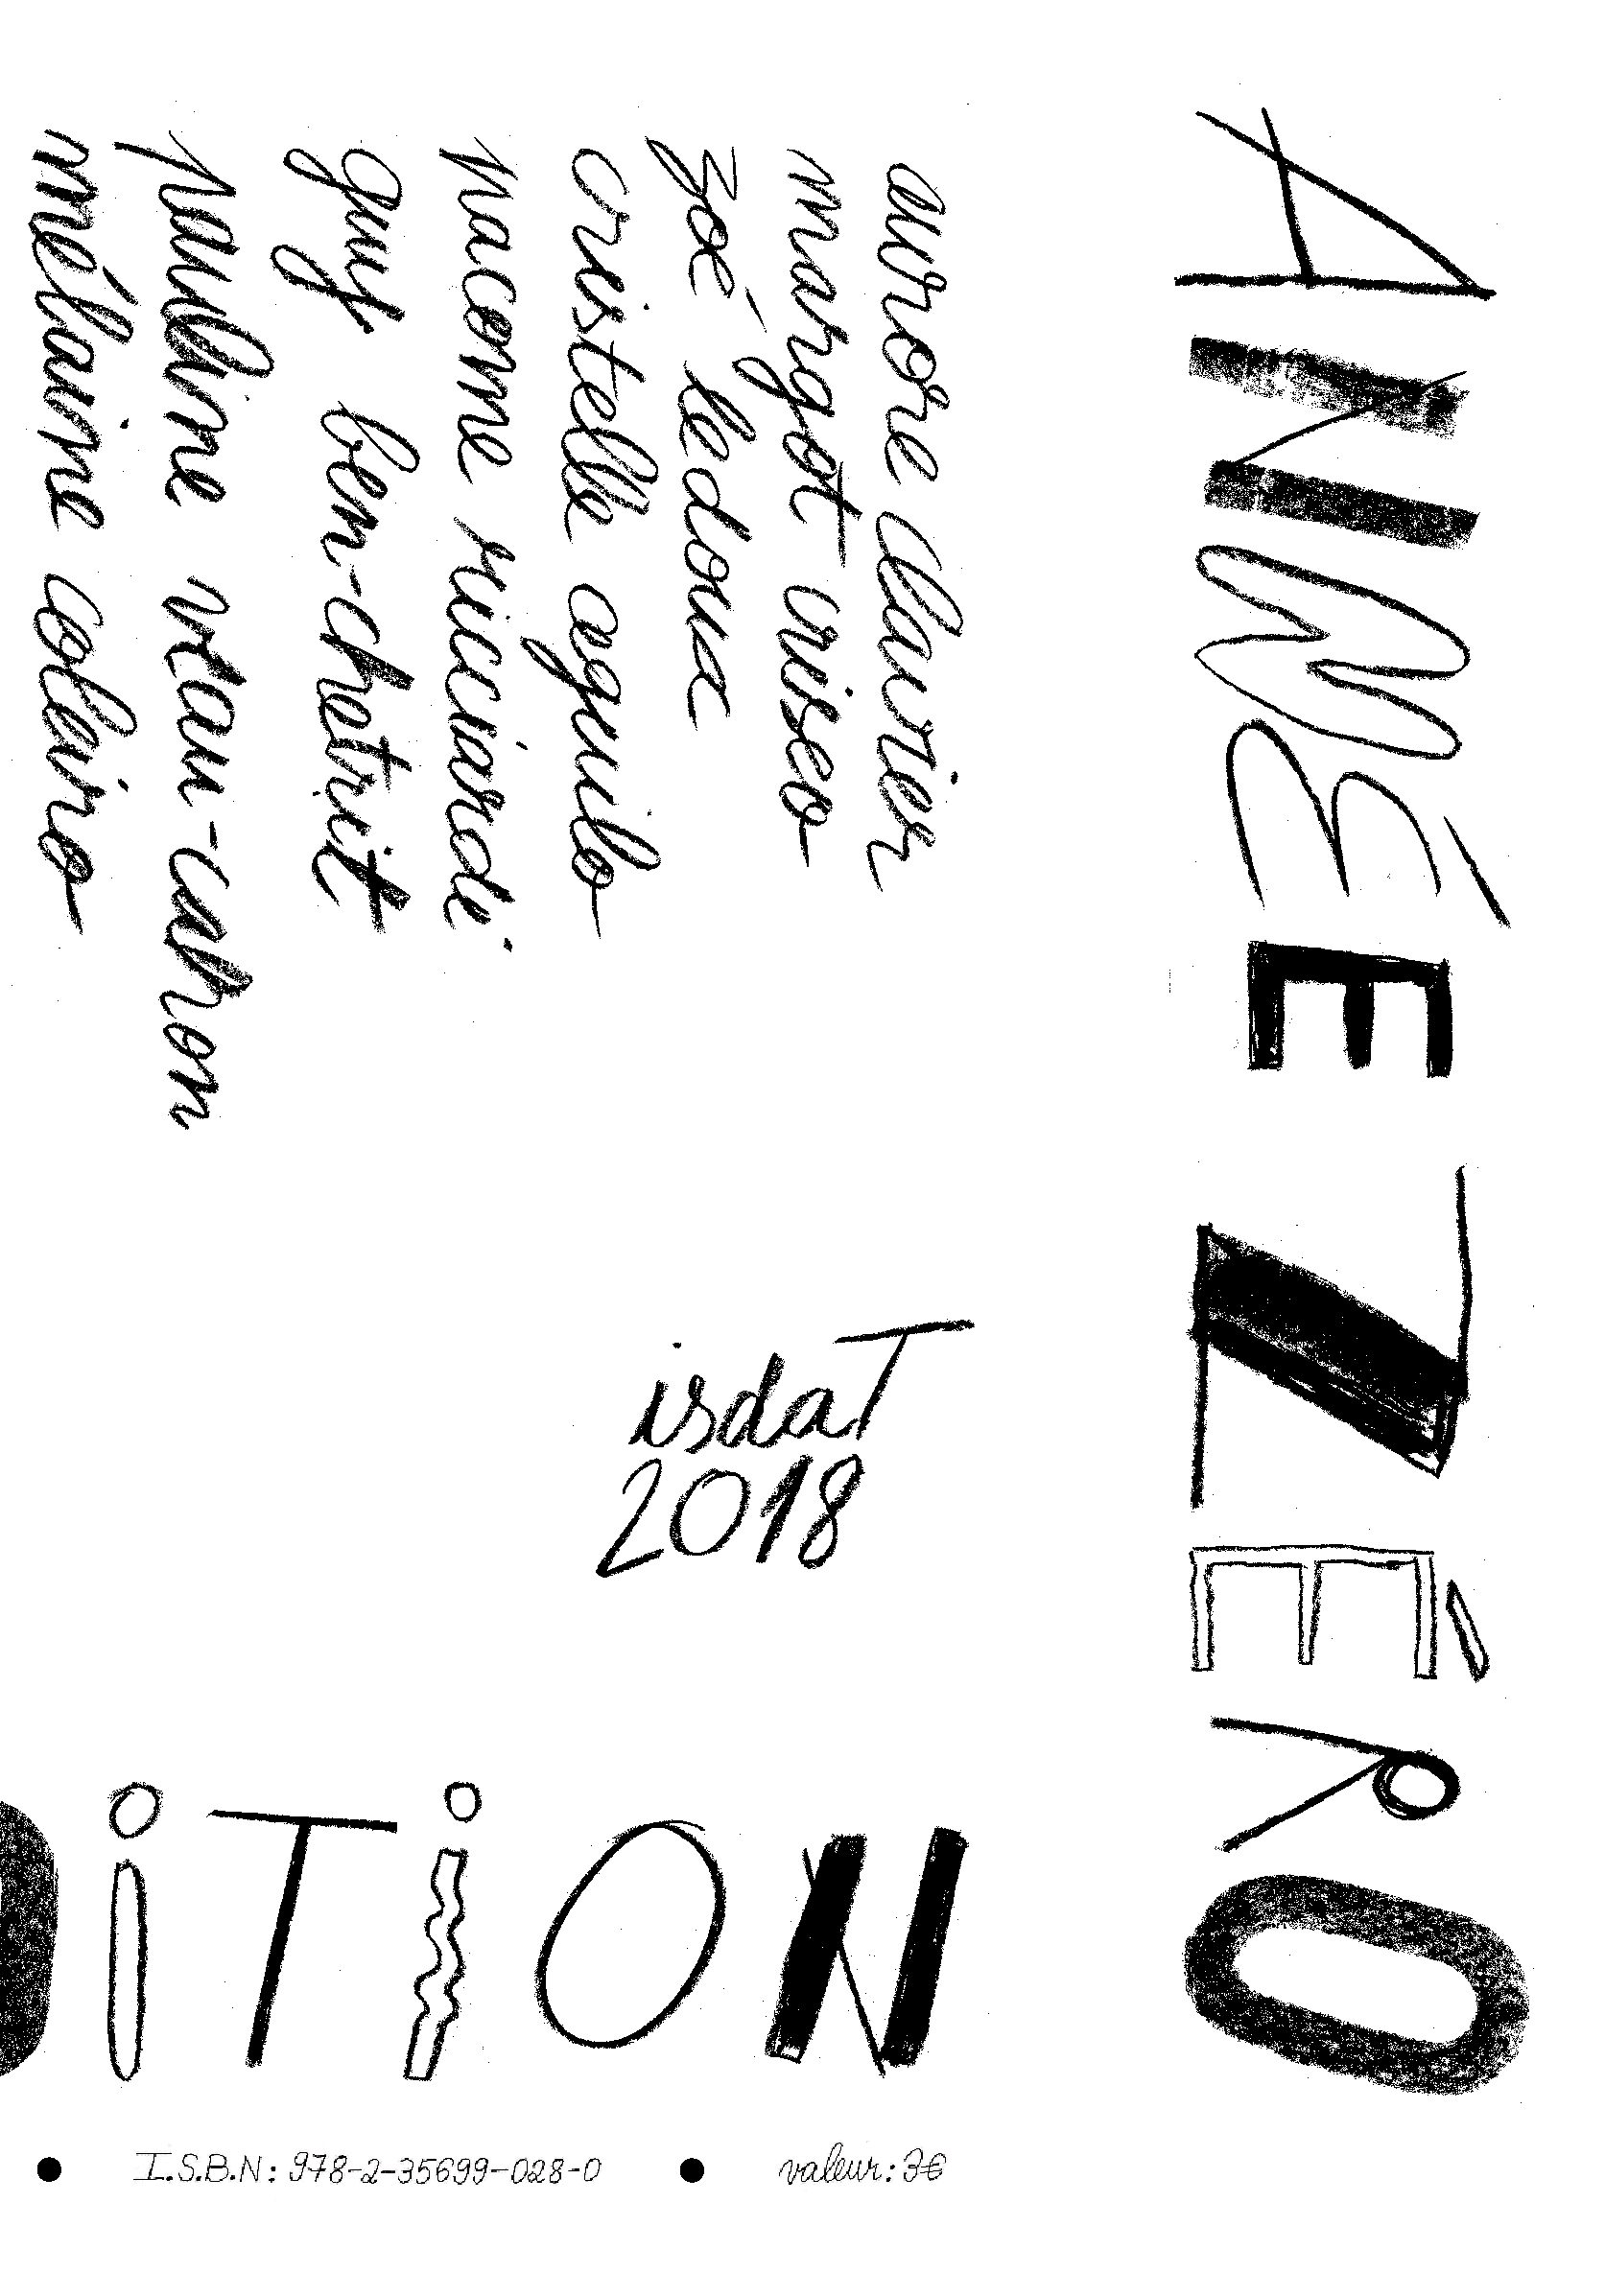 ANNÉE ZÉRO
aurore clavier
margot criseo
zoé ledoux
cristelle aguilo
nacome ricciardi
guy ben-chetrit
pauline vétau-catron
mélanie colairo
isdaT
2018
DiTiON
I.S.B.N: 978-2-35699-028-0
valeur: 3€